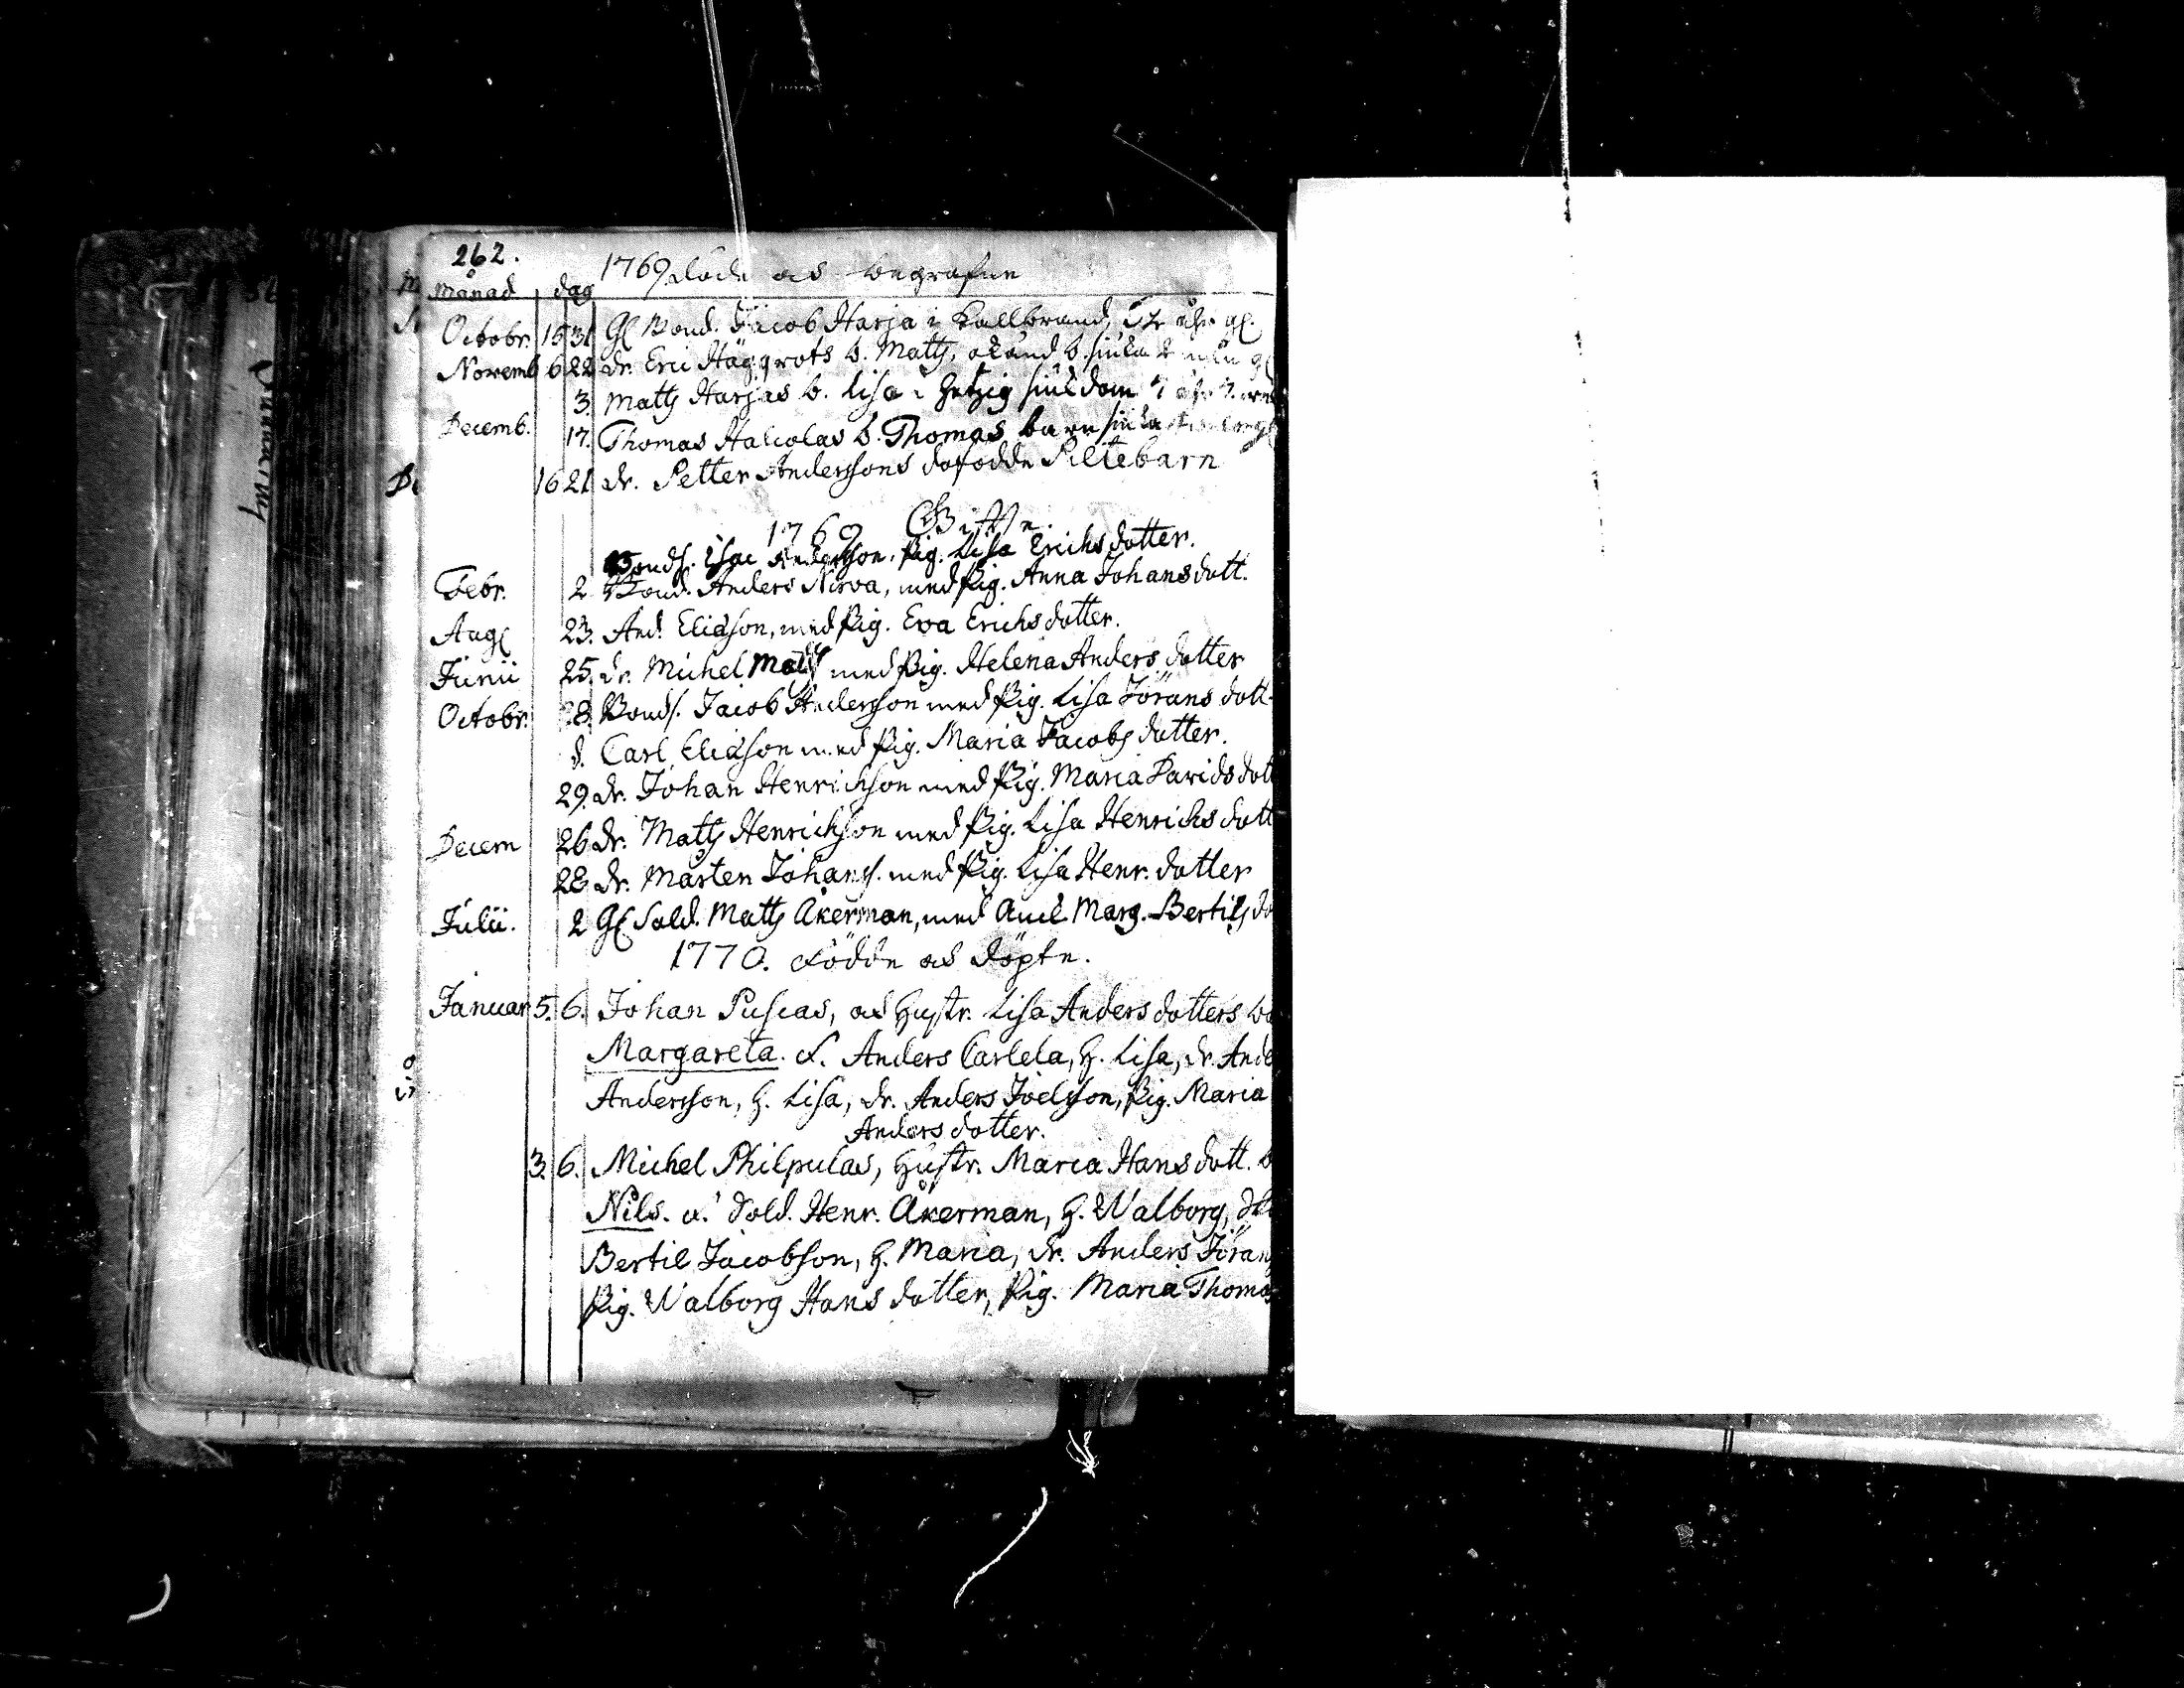 262.
1769 döde och begrafne
Månad dag
Octobr. 15 31 Gl Bond. Jacob Harja i Kallbrand, 52 åhr gl.
Novemb 6 22 dr. Eric Häggrots b. Matts, okänd b. siuka
3. Matts Harjas b. Lisa i siukdom 7 åhr
Decemb. 17. Thomas Halcolas b. Thomas barnsiuka
16 21 dr. Petter Anderssons döfödde Piltebarn
1769 Gifte.
Bonds. Isac Andersson, Pig. Lisa Erichsdotter.
Febr. 2 Bond. Anders Nirva, med Pig. Anna Johansdott.
Aug 23. And. Eliasson, med Pig. Eva Erichsdotter.
Junii 25. dr. Michel Matts med Pig. Helena Anders dotter
Octobr. 28. Bonds. Jacob Andersson med Pig. Lisa Jörans dott.
d. Carl Eliasson med Pig. Maria Jacobs dotter.
29. dr. Johan Henrichson med Pig. Maria Davids dott
Decem 26 dr. Matts Henrichson med Pig. Lisa Henrichs dott
28 dr. Mårten Johans. med Pig. Lisa Henr. dotter
Julii. 2 Gl Sold. Matts Åkerman, med Marg. Bertils do
1770. Födde och döpte.
Januar 5. 6. Johan Puscas, och Hustr. Lisa Anders dotters ba
Margareta. f. Anders Carlela, H. Lisa, dr. Ande
Andersson, H. Lisa, dr. Anders Joelsson, Pig. Maria
Anders dotter.
3. 6. Michel Philpulas, Hustr. Maria Hans dott. b
Nils. f. Sold. Henr. Åkerman, H. Walborg,
Bertil Jacobson, H. Maria, dr. Anders Jörans
Pig. Walborg Hans dotter, Pig. Maria Thomas